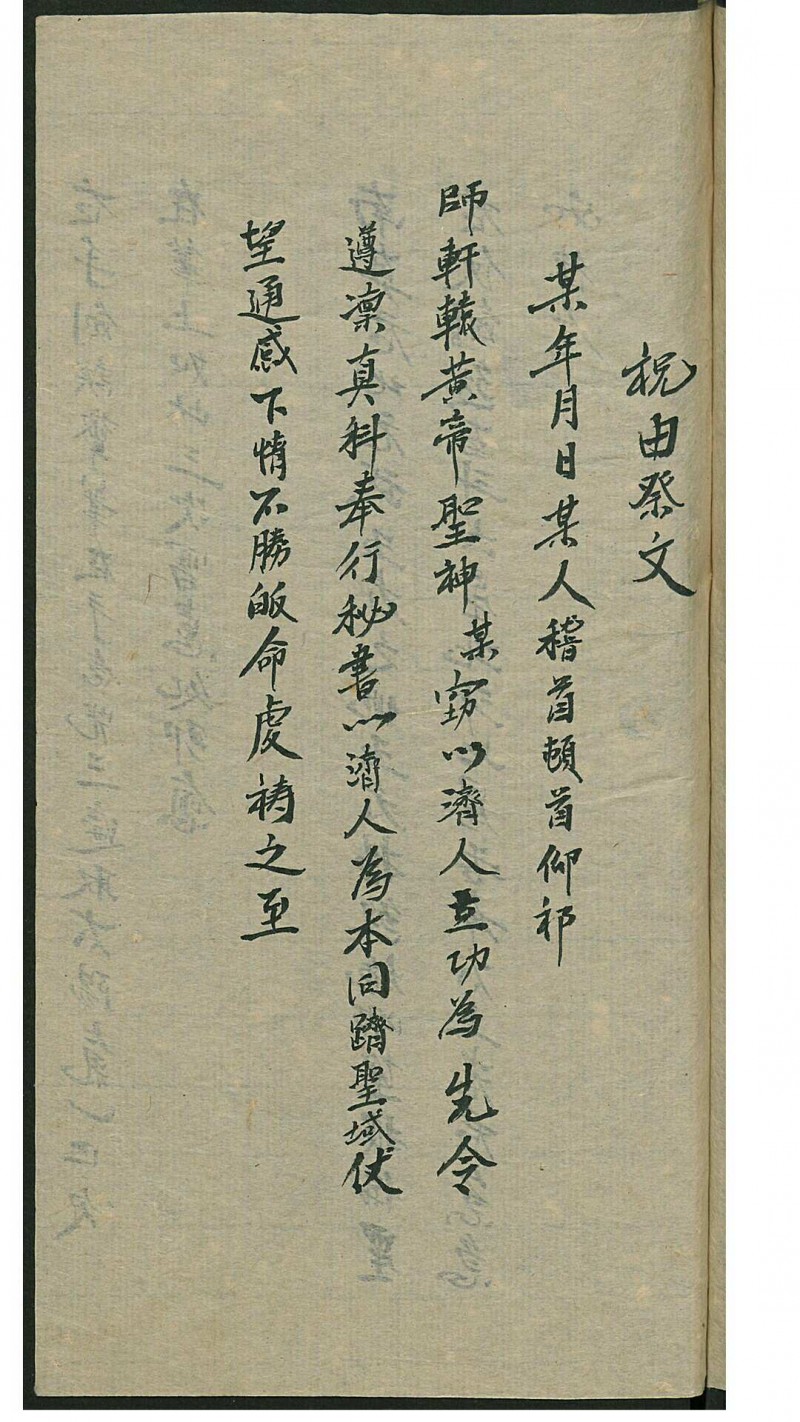 祝由祭文
某年月日某人稽首頓首仰祁
師軒轅黃帝聖神某窃以濟人立功為先令
遵凛真科奉行秘書以濟人為本同躋聖域伏
望通感下情不勝皈命虔祷之至